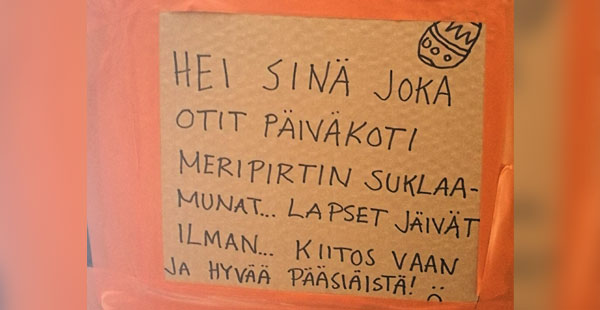 HEI SINÄ JOKA
OTIT PÄIVÄKOTI
MERIPIRTIN SUKLAA-
MUNAT... LAPSET JÄIVÄT
ILMAN... KIITOS VAAN
JA HYVÄÄ PÄÄSIÄISTÄ!